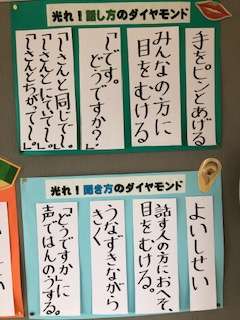 光れ！話し方のダイヤモンド
手をピンとあげる
みんなの方に
目をむける
「～です。
どうですか？」
「～さんと同じで～。」
「～さんとにていて～。」
「～さんとちがって～。」
光れ！聞き方のダイヤモンド
よいしせい
話す人の方におへそ、
目をむける。
うなずきながら
きく
「どうですか」に
声ではんのうする。